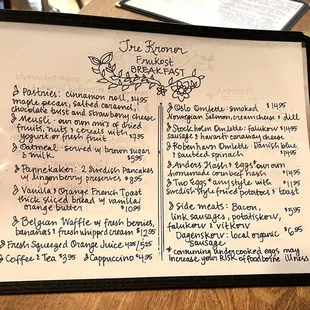 Tre Kronor
Frukost
BREAKFAST
Pastries: cinnamon roll, $4.95
maple pecan, salted caramel,
chocolate bust and strawberry cheese
Meusli - our own mix of dried
fruits, nuts & cereals with
yogurt or fresh fruit $7.95
Oatmeal - served w/ brown sugar
& milk $5.95
Pannekaker: 2 Swedish Pancakes
w/ lingonberry preserves $8.95
Vanilla & Orange French Toast
thick sliced bread w/ vanilla
orange butter $10.95
Belgian Waffle w/ fresh berries,
bananas & fresh whipped cream $12.95
Fresh Squeezed Orange Juice 4.25/5.25
Coffee & Tea $3.95 Cappuccino $4.95
Oslo Omlette: smoked $14.95
Norwegian Salmon, cream cheese & dill
Stockholm Omlette: falukorv $14.95
sausage & havarti caraway cheese
Kobenhavn Omlette: Danish blue
& sautéed spinach $14.95
Anders Hash & Eggs our own
homemade corned beef hash $14.95
Two Eggs any style with $11.95
Swedish style fried potatoes & toast
Side meats: Bacon,
link sausages, potatiskorv, $5.95
falukorv & vitkorv
Dagenskorv: local organic $6.95
sausage
* consuming undercooked eggs may
increase your risk of foodborne illness